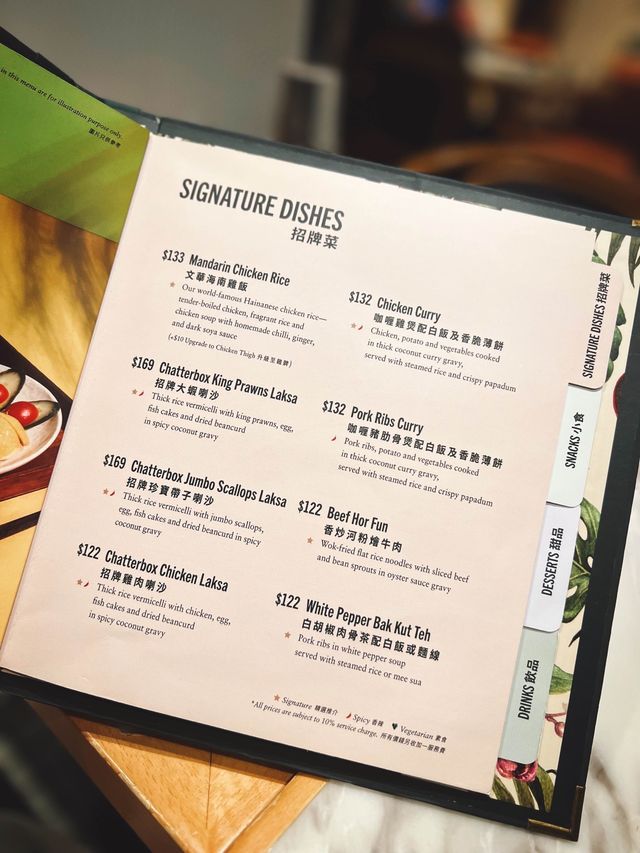 in this menu are for illustration purpose only.
圖片只供參考
SIGNATURE DISHES
招牌菜
$133 Mandarin Chicken Rice
文華海南雞飯
Our world-famous Hainanese chicken rice—
tender-boiled chicken, fragrant rice and
chicken soup with homemade chilli, ginger,
and dark soya sauce
(+$10 Upgrade to Chicken Thigh 升級至雞髀)
$169 Chatterbox King Prawns Laksa
招牌大蝦喇沙
Thick rice vermicelli with king prawns, egg,
fish cakes and dried beancurd
in spicy coconut gravy
$169 Chatterbox Jumbo Scallops Laksa
招牌珍寶帶子喇沙
Thick rice vermicelli with jumbo scallops,
egg, fish cakes and dried beancurd in spicy
coconut gravy
$122 Chatterbox Chicken Laksa
招牌雞肉喇沙
Thick rice vermicelli with chicken, egg,
fish cakes and dried beancurd
in spicy coconut gravy
$132 Chicken Curry
咖喱雞煲配白飯及香脆薄餅
Chicken, potato and vegetables cooked
in thick coconut curry gravy,
served with steamed rice and crispy papadum
$132 Pork Ribs Curry
咖喱豬肋骨煲配白飯及香脆薄餅
Pork ribs, potato and vegetables cooked
in thick coconut curry gravy,
served with steamed rice and crispy papadum
$122 Beef Hor Fun
香炒河粉燴牛肉
Wok-fried flat rice noodles with sliced beef
and bean sprouts in oyster sauce gravy
$122 White Pepper Bak Kut Teh
白胡椒肉骨茶配白飯或麵線
Pork ribs in white pepper soup
served with steamed rice or mee sua
Signature 精選推介 Spicy 香辣 Vegetarian 素食
*All prices are subject to 10% service charge. 所有價錢另收加一服務費
SIGNATURE DISHES 招牌菜
SNACKS 小食
DESSERTS 甜品
DRINKS 飲品